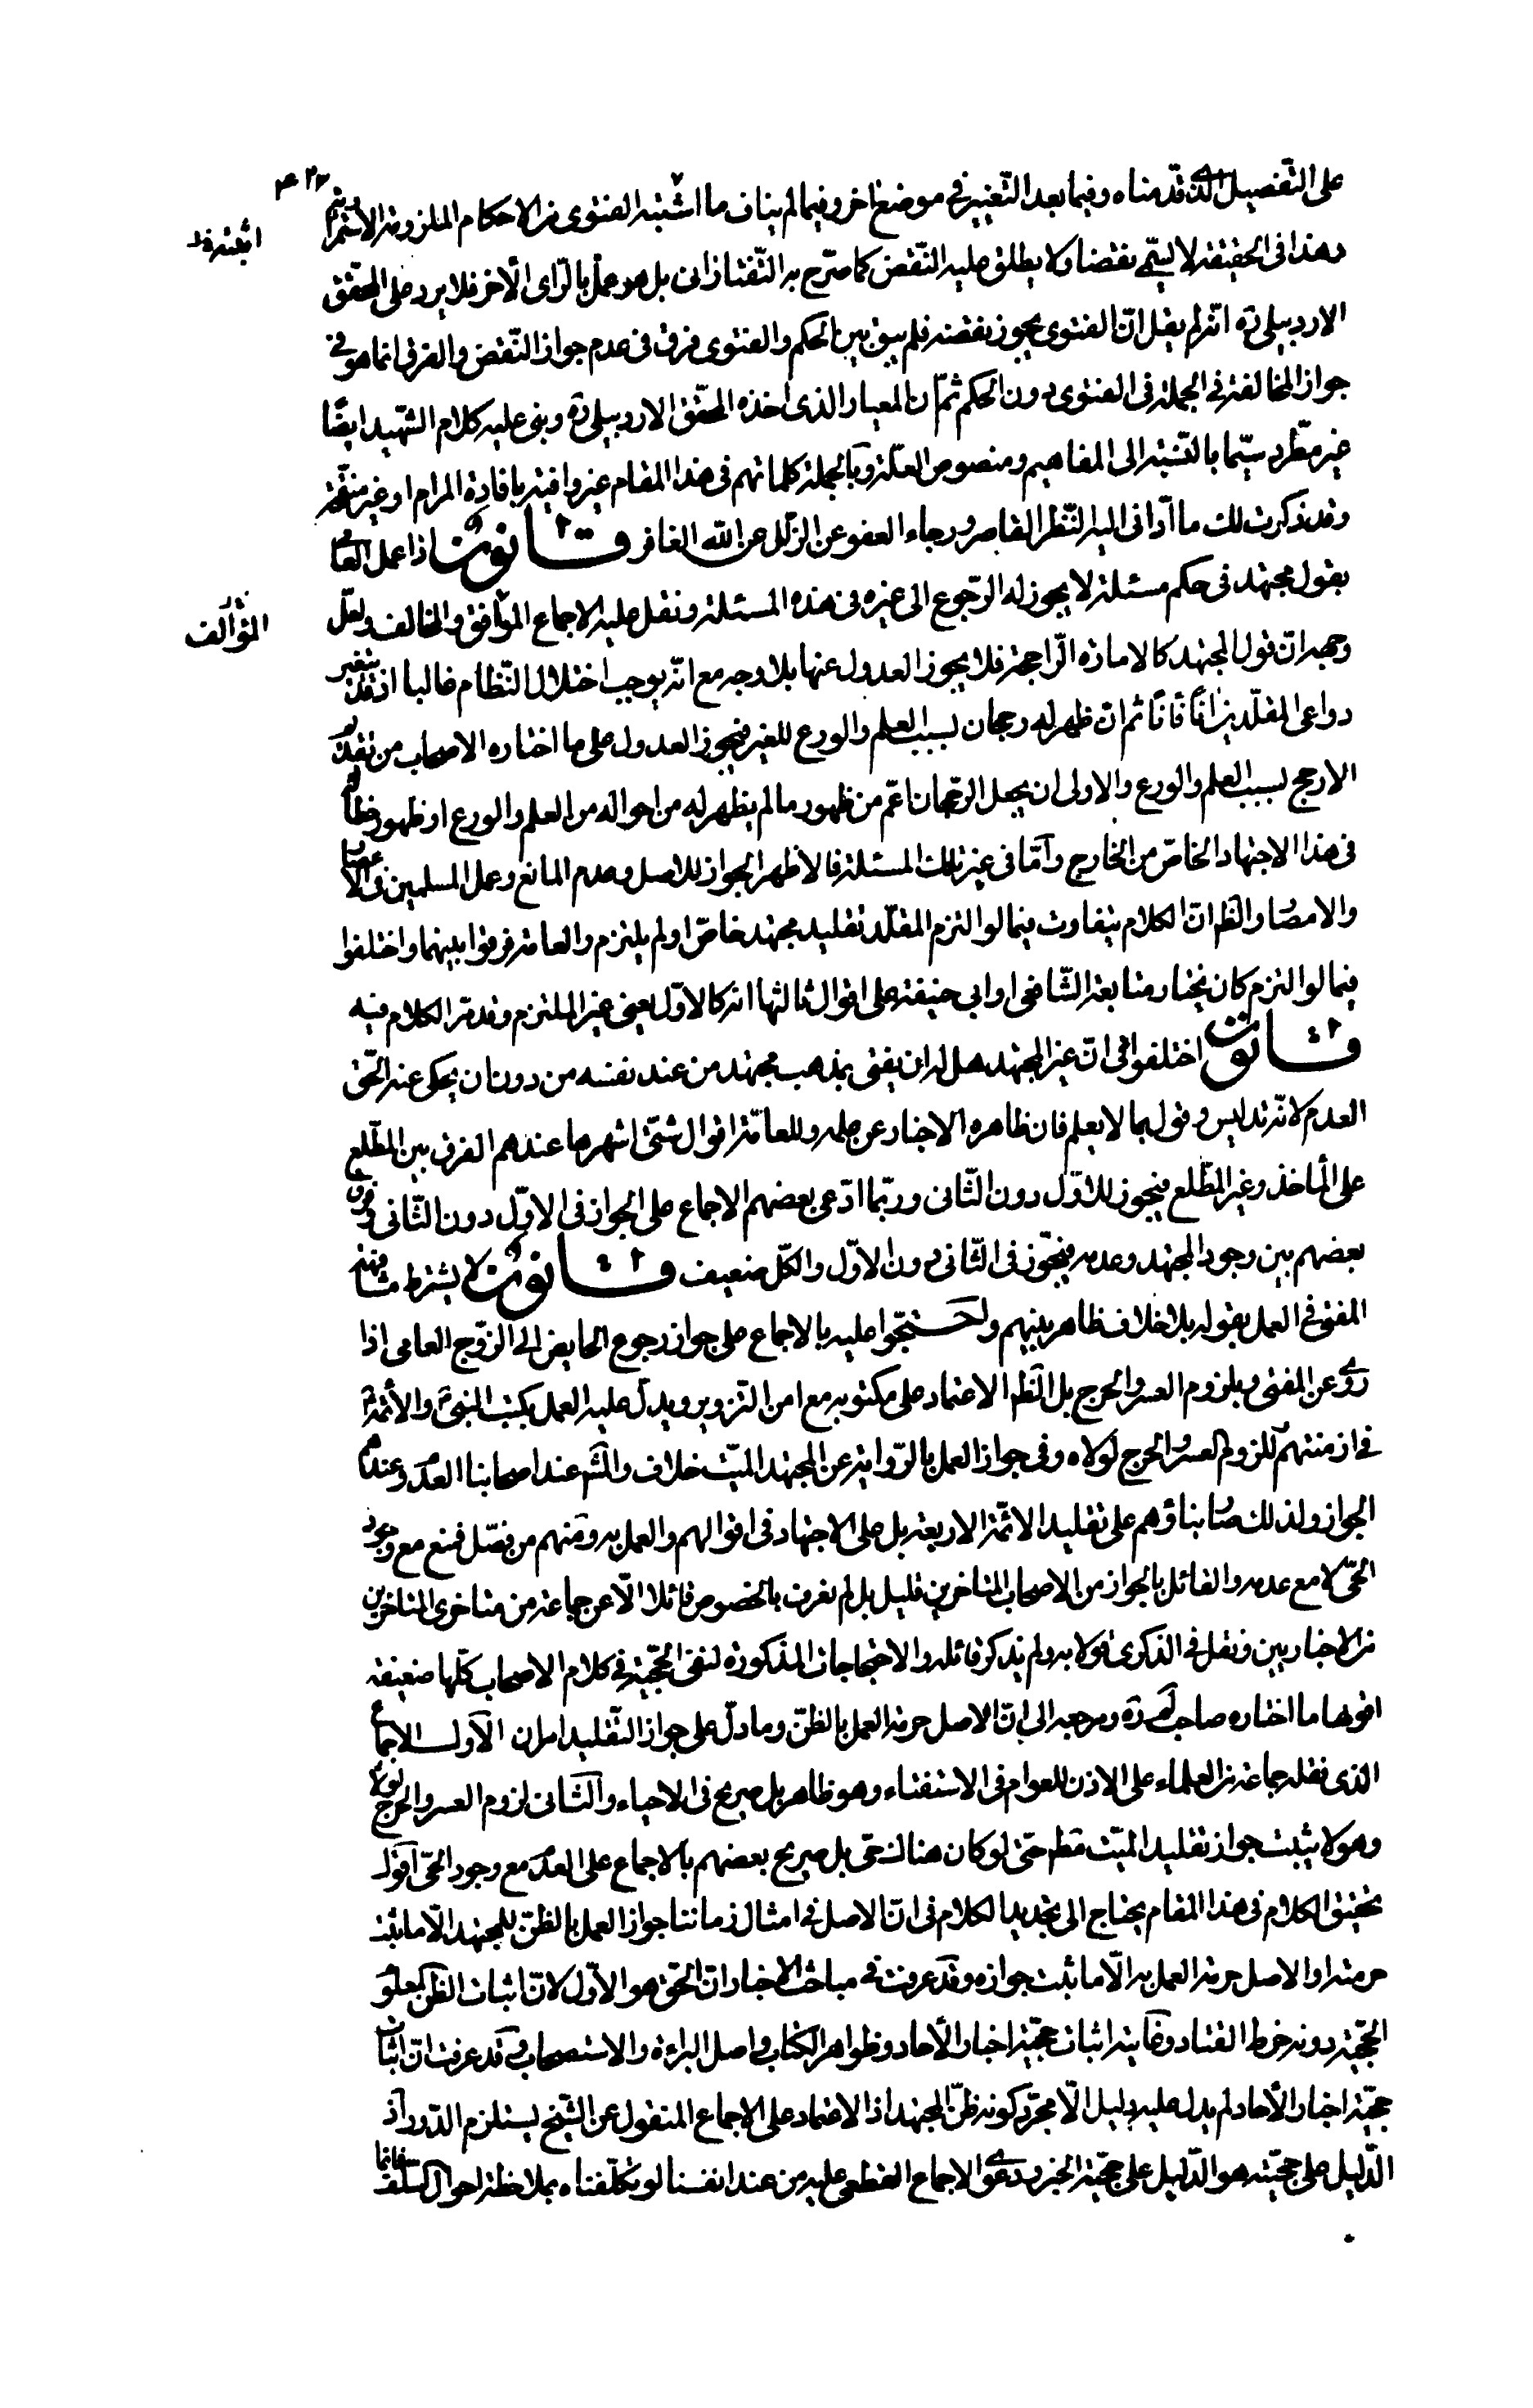 على التفصيل الذى قدّمناه وفيما بعد التّغيير فى موضع اخر وفيما لم يناف ما اثبته الفتوى من الاحكام الملزومة للاستمرار
وهذا فى الحقيقة لا يسمّى نقضا ولا يطلق عليه النّقض كما صرّح به التّفتازانى بل هو عمل بالرّاى الاخر فلا يرد على المحقّق
الاردبيلى ره انّه لم يقل انّ الفتوى يجوز نقضه فلم يبق بين الحكم والفتوى فرق فى عدم جواز النّقض والفرق انما هو فى
جواز المخالفة فى الجملة فى الفتوى دون الحكم ثمّ انّ المعيار الذى اخذه المحقّق الاردبيلى ره وبنى عليه كلام الشّهيد ايضًا
غير مطّرد سيّما بالنّسبة الى المفاهيم ومنصوص العلّة وبالجملة كلماتهم فى هذا المقام غير وافية بافادة المرام او غير منقّحة
وقد ذكرت لك ما ادّانى اليه النّظر القاصر ورجاء العفو عن الزّلل عن الله الغافر قانون اذا عمل العامى
بقول مجتهد فى حكم مسئلة لا يجوز له الرّجوع الى غيره فى هذه المسئلة ونقل عليه الاجماع المؤالف والمخالف ولعلّ
وجهه انّ قول المجتهد كالامارة الرّاجحة فلا يجوز العدول عنها بلا وجه مع انّه يوجب اختلال النّظام غالبا اذ قد يتغير
دواعى المقلّدين انًا فانًا ثم ان ظهر له رجحان بسبب العلم والورع للغير فيجوز العدول على ما اختاره الاصحاب من تقديم
الارجح بسبب العلم والورع والاولى ان يجعل الرّجحان اعمّ من ظهور ما لم يظهر له من احواله من العلم والورع او ظهور خطائه
فى هذا الاجتهاد الخاصّ من الخارج وامّا فى غير تلك المسئلة فالاظهر الجواز للاصل وعدم المانع وعمل المسلمين فى الاعصار
والامصار والظ انّ الكلام يتفاوت فيما لو التزم المقلّد تقليد مجتهد خاصّ او لم يلتزم والعامّة فرقوا بينهما واختلفوا
فيما لو التزم كان يختار متابعة الشّافعى او ابى حنيفة على اقوال ثالثها انّه كالاوّل يعنى غير الملتزم وقد مرّ الكلام فيه
قانون اختلفوا فى انّ غير المجتهد هل له ان يفتى بمذهب مجتهد من عند نفسه من دون ان يحكى عنه الحقّ
العدم لانّه تدليس وقول بما لا يعلم فان ظاهره الاخبار عن علمه وللعامّة اقوال شتّى اشهرها عندهم الفرق بين المطّلع
على المأخذ وغير المطّلع فيجوز للاوّل دون الثّانى وربّما ادّعى بعضهم الاجماع على الجواز فى الاوّل دون الثّانى وفرق
بعضهم بين وجود المجتهد وعدمه فيجوّز فى الثّانى دون الاوّل والكلّ ضعيف قانون لا يشترط مشافهة
المفتى فى العمل بقوله بلا خلاف ظاهر بينهم واحتجّوا عليه بالاجماع على جواز رجوع الحايض الى الزّوج العامى اذا
روى عن المفتى وبلزوم العسر والحرج بل الظ الاعتماد على مكتوبه مع امن التّزوير ويدلّ عليه العمل بكتب النبىّ والائمّة
فى ازمنتهم للزوم العسر والحرج لولاه وفى جواز العمل بالرّواية عن المجتهد الميّت خلاف والشه عند اصحابنا العدم وعندهم
الجواز ولذلك صار بناؤهم على تقليد الائمّة الاربعة بل على الاجتهاد فى اقوالهم والعمل به ومنهم من فصّل فمنع مع وجود
الحىّ لا مع عدمه والقائل بالجواز من الاصحاب المتاخرين قليل بل لم نعرف بالخصوص قائلا الّا عن جماعة من متاخرى المتاخرين
من الاخباريين ونقل فى الذكرى قولا به ولم يذكر قائله والاحتجاجات المذكورة لنفى الحجّيّة فى كلام الاصحاب كلّها ضعيفة
اقويها ما اختاره صاحب لم ره ومرجعه الى انّ الاصل حرمة العمل بالظنّ وما دلّ على جواز التّقليد امران الاول الاجماع
الذى نقله جماعة من العلماء على الاذن للعوام فى الاستفتاء وهو ظاهر بل صريح فى الاحياء والثانى لزوم العسر والحرج لولا
وهو لا يثبت جواز تقليد الميّت مطم حتى لو كان هناك حىّ بل صريح بعضهم بالاجماع على العدم مع وجود الحىّ اقول
تحقيق الكلام فى هذا المقام يحتاج الى تجديد الكلام فى انّ الاصل فى امثال زماننا جواز العمل بالظنّ للمجتهد الّا ما ثبت
حرمته او الاصل حرمة العمل به الّا ما ثبت جوازه وقد عرفت فى مباحث الاخبار انّ الحقّ هو الاوّل لانّ اثبات الظن المعلوم
الحجّيّة دونه خرط القتاد وغاية اثبات حجّيّة اخبار الاحاد وظواهر الكتاب واصل البراءة والاستصحاب وقد عرفت انّ اثبات
حجّيّة اخبار الاحاد لم يدل عليه دليل الّا مجرّد كونه ظنّ المجتهد اذ الاعتماد على الاجماع المنقول عن الشّيخ يستلزم الدّور اذ
الدّليل على حجّيّته هو الدّليل على حجّيّة الخبر ودعوى الاجماع القطعى عليه من عند انفسنا لو تكلّفناه بملاحظة احوال السّلف فانما